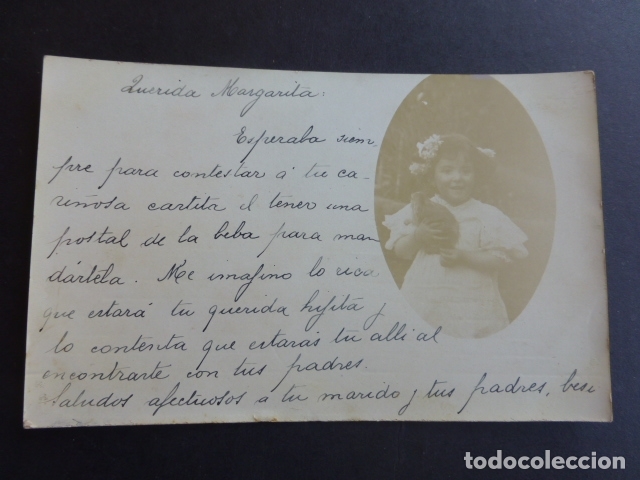 Querida Margarita:
Esperaba siem,
pre para contestar á tu ca-
riñosa cartita el tener una
postal de la beba para man
dártela. Me imagino lo rica
que estará tu querida hijita y
lo contenta que estarás tu alli al
encontrarte con tus padres.
Saludos afectuosos a tu marido y tus padres, bes
todocoleccion.net